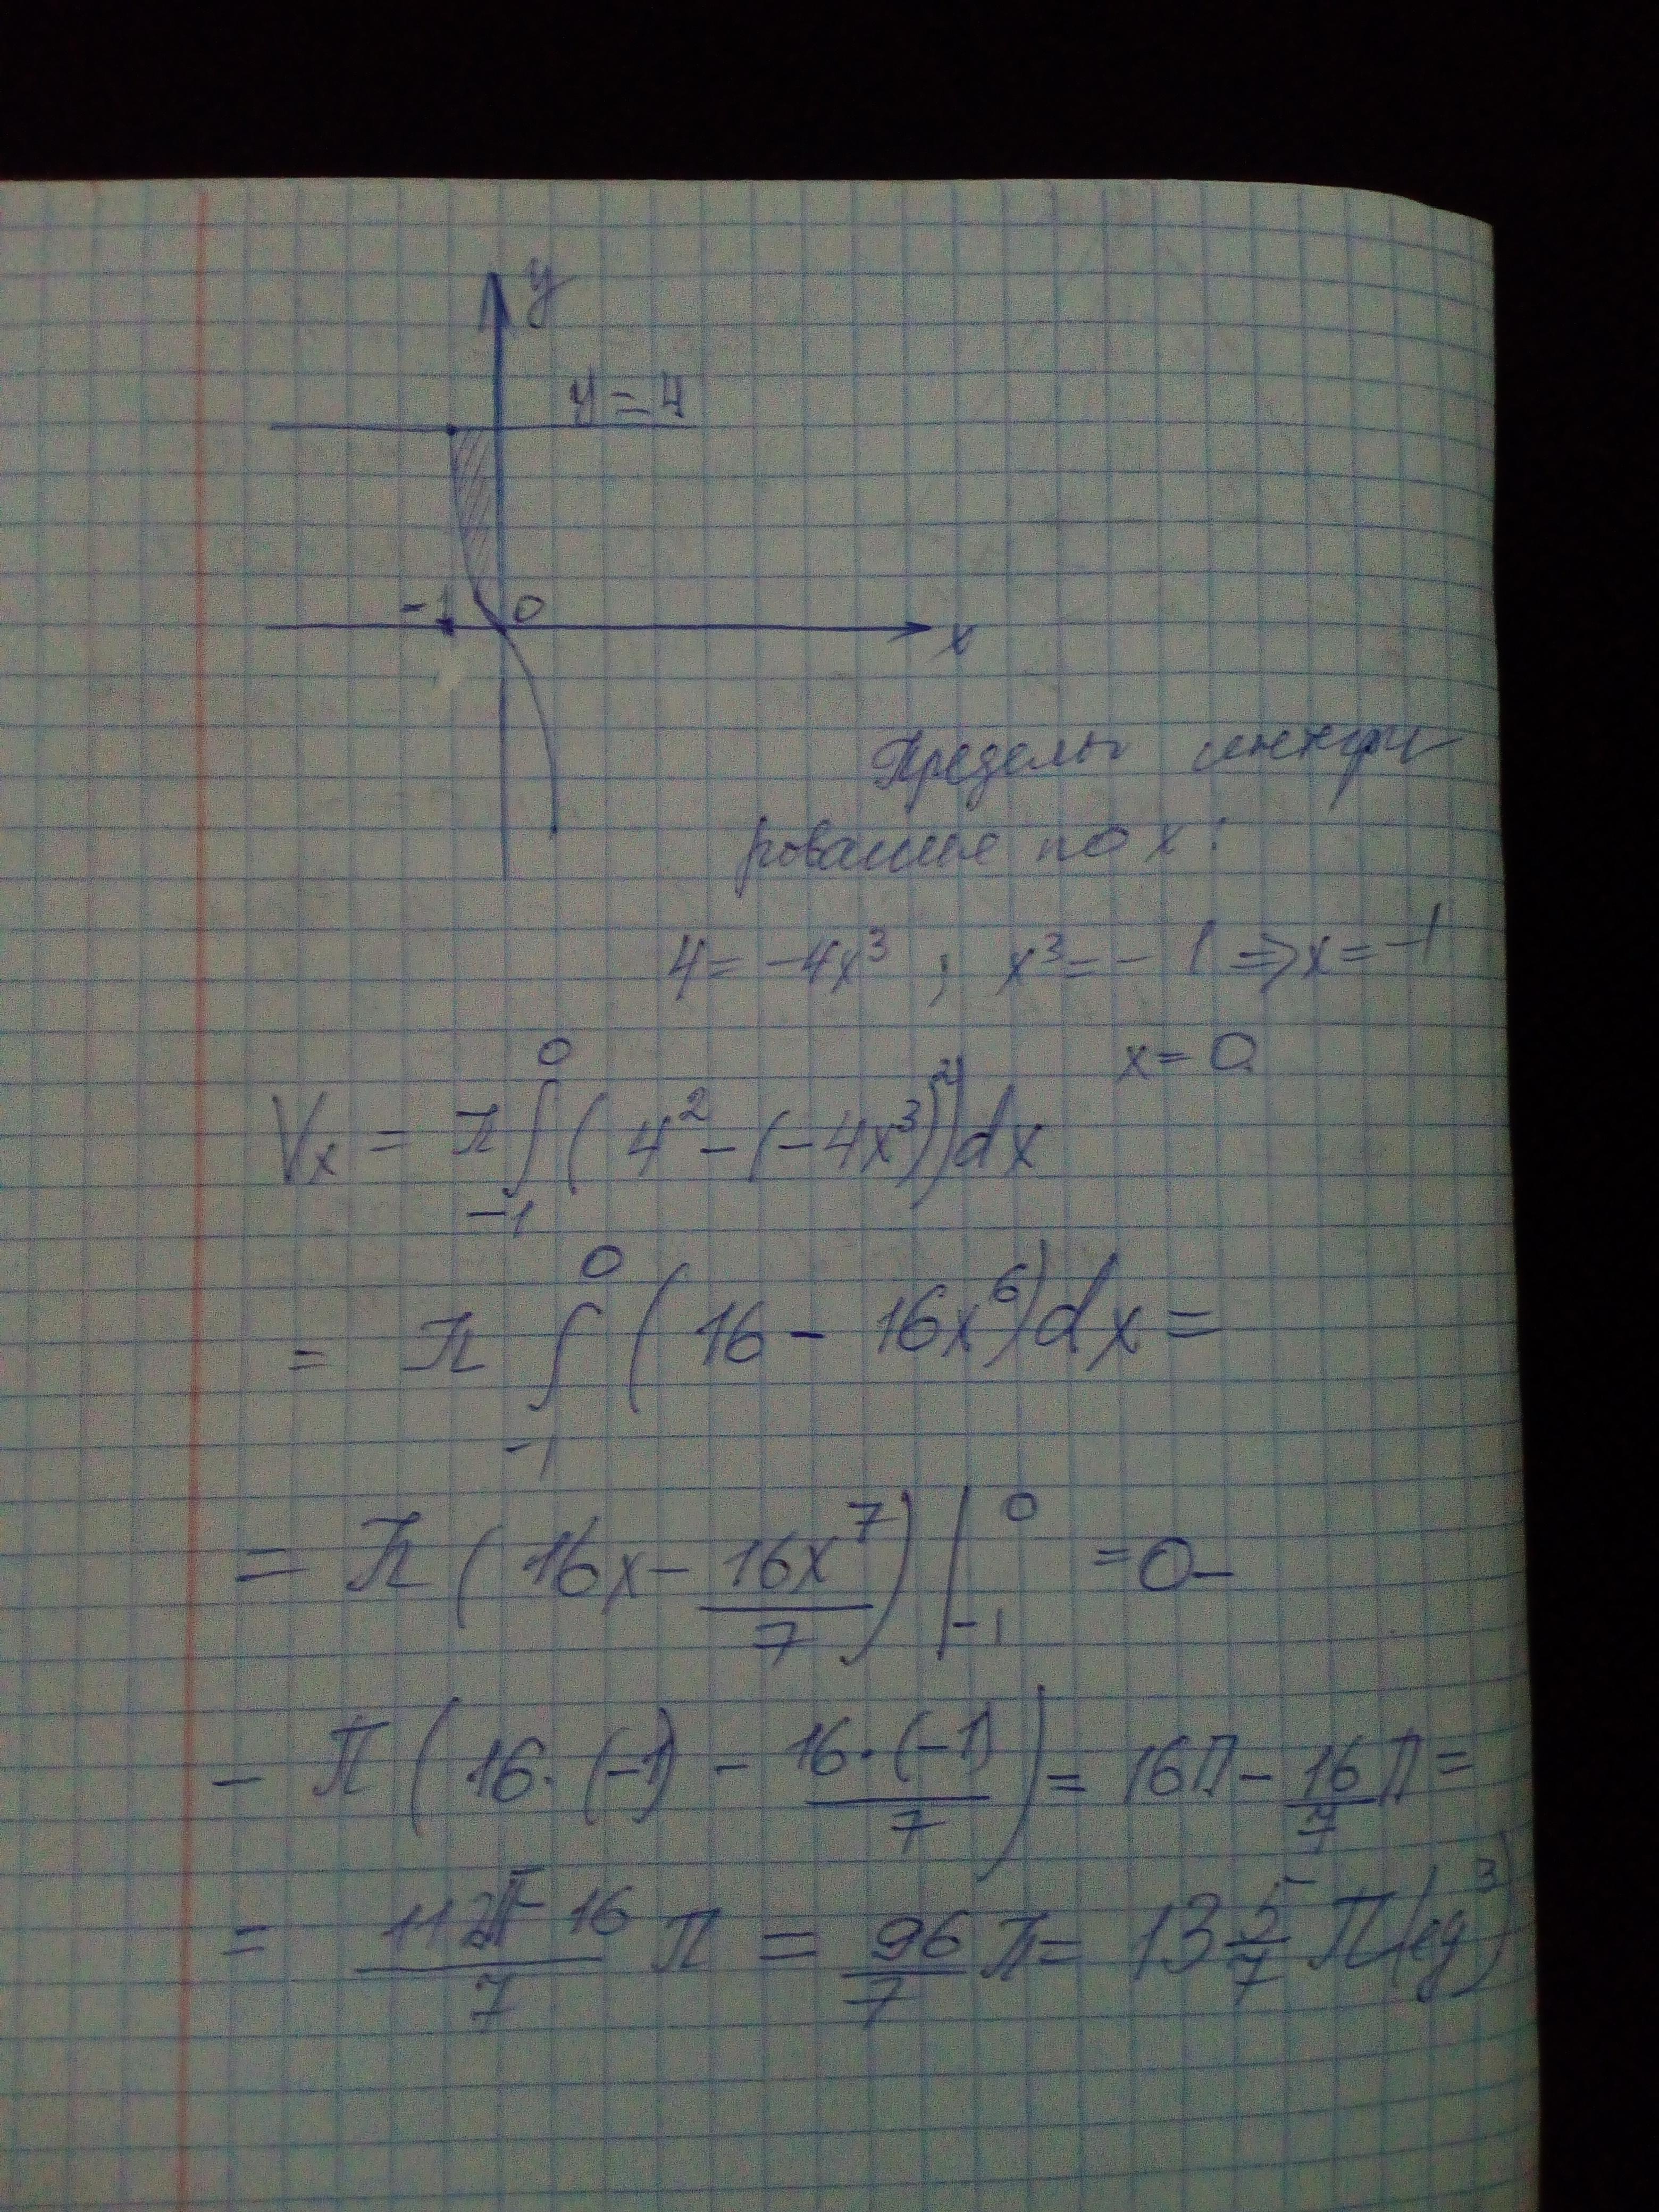 y
y = 4
-1 0
x
Пределы интегри
рование по x:
4 = -4x³ ; x³ = -1 ⇒ x = -1
x = 0
Vx = π∫₋₁⁰ (4² - (-4x³)²)dx
= π ∫₋₁⁰ (16 - 16x⁶)dx =
= π (16x - 16x⁷/7) |₋₁⁰ = 0 -
- π (16·(-1) - 16·(-1)/7) = 16π - 16/7 π =
= (112 - 16)/7 π = 96/7 π = 13 5/7 π (ед³)